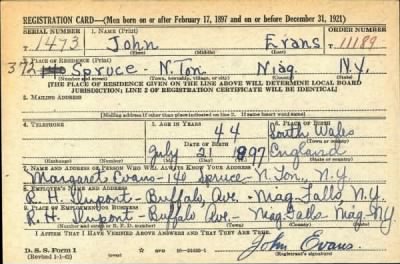 REGISTRATION CARD—(Men born on or after February 17, 1897 and on or before December 31, 1921)
SERIAL NUMBER 1. NAME (Print) ORDER NUMBER
T 1473 John Evans T 11189
(First) (Middle) (Last)
2. PLACE OF RESIDENCE (Print)
372 140 Spruce - N. Ton Niag. N.Y.
(Number and street) (Town, township, village, or city) (County) (State)
[THE PLACE OF RESIDENCE GIVEN ON THE LINE ABOVE WILL DETERMINE LOCAL BOARD
JURISDICTION; LINE 2 OF REGISTRATION CERTIFICATE WILL BE IDENTICAL]
3. MAILING ADDRESS
[Mailing address if other than place indicated on line 2. If same insert word same]
4. TELEPHONE 5. AGE IN YEARS 6. PLACE OF BIRTH
44 South Wales
DATE OF BIRTH (Town or county)
July 21 1897 England
(Exchange) (Number) (Mo.) (Day) (Yr.) (State or country)
7. NAME AND ADDRESS OF PERSON WHO WILL ALWAYS KNOW YOUR ADDRESS
Margaret Evans - 140 Spruce - N. Ton., N.Y.
8. EMPLOYER'S NAME AND ADDRESS
R. H. Dupont - Buffalo Ave. - Niag. Falls N.Y.
9. PLACE OF EMPLOYMENT OR BUSINESS
R. H. Dupont - Buffalo Ave. - Niag. Falls Niag. N.Y.
(Number and street or R. F. D. number) (Town) (County) (State)
I AFFIRM THAT I HAVE VERIFIED ABOVE ANSWERS AND THAT THEY ARE TRUE.
D. S. S. Form 1 John Evans
(Revised 1-1-42) (Registrant's signature)